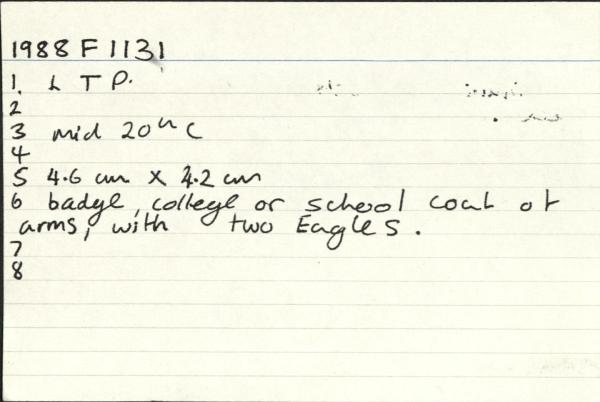 1988 F 1131
1. L T P.
2
3 mid 20th C
4
5 4.6 cm X 4.2 cm
6 badge, college or school coat of
arms, with two Eagles.
7
8